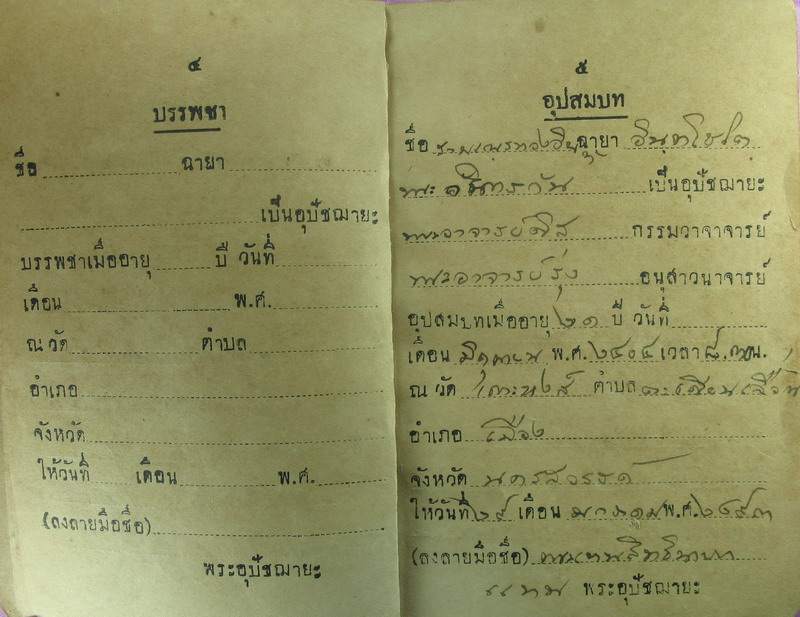 ๔
บรรพชา
ชื่อ ฉายา
เป็นอุปัชฌายะ
บรรพชาเมื่ออายุ ปี วันที่
เดือน พ.ศ.
ณ วัด ตำบล
อำเภอ
จังหวัด
ให้วันที่ เดือน พ.ศ.
(ลงลายมือชื่อ)
พระอุปัชฌายะ
๕
อุปสมบท
ชื่อ ฉายา อินฺทโชโต
พระ เป็นอุปัชฌายะ
พระอาจารย์ กรรมวาจาจารย์
พระอาจารย์รุ่ง อนุสาวนาจารย์
อุปสมบทเมื่ออายุ ๒๑ ปี วันที่
เดือน พ.ศ. เวลา น.
ณ วัด เกาะหงส์ ตำบล ตะเคียนเลื่อน
อำเภอ เมือง
จังหวัด นครสวรรค์
ให้วันที่ ๒๙ เดือน พ.ศ. ๒๔๙๓
(ลงลายมือชื่อ)
แทน พระอุปัชฌายะ